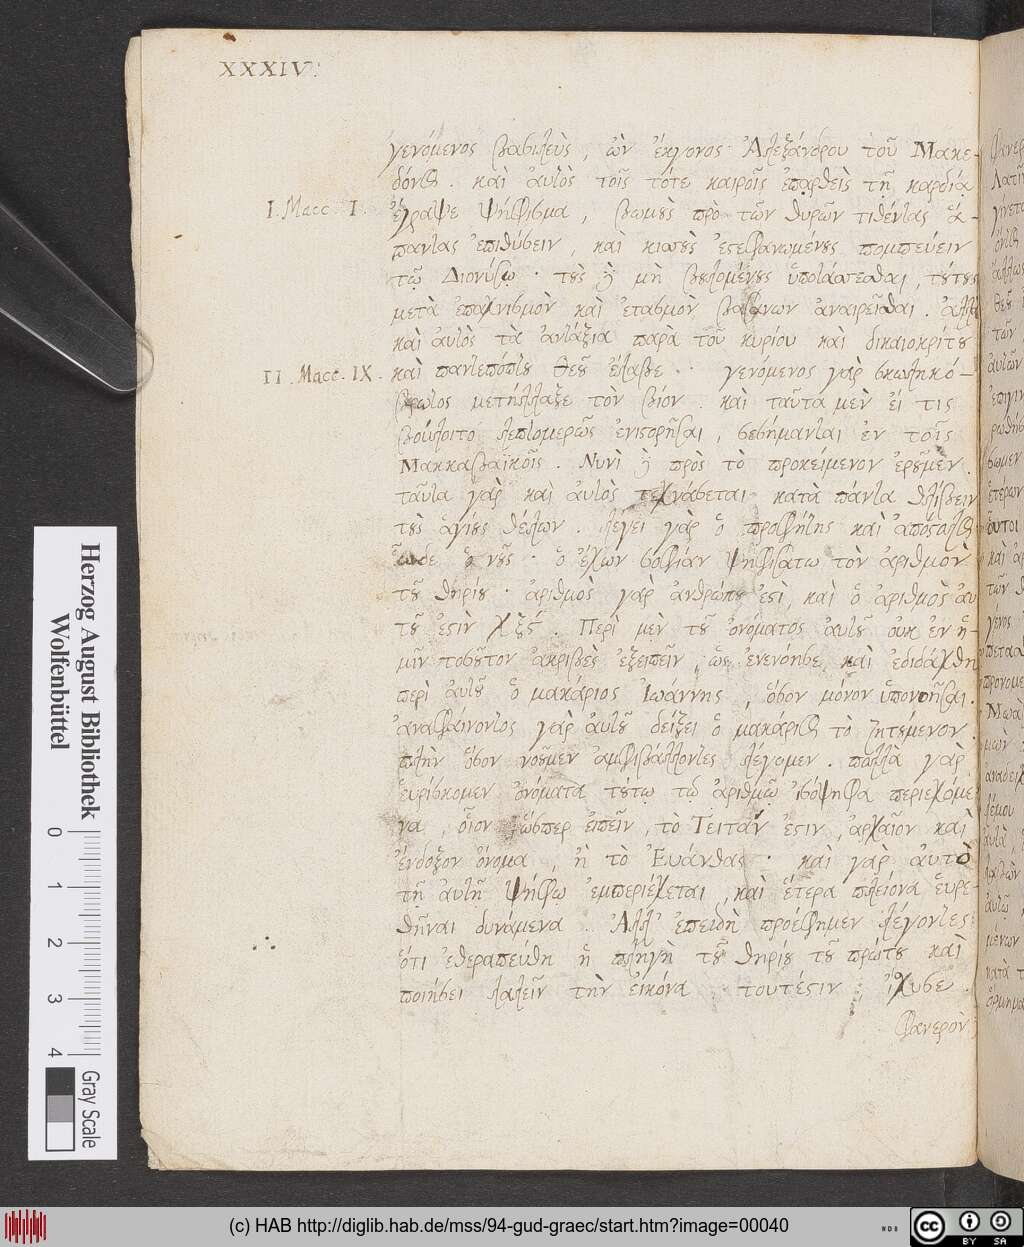 XXXIV.
γενόμενος βασιλεὺς, ὢν ἔκγονος Ἀλεξάνδρου τοῦ Μακε-
δόνος. καὶ αὐτὸς τοῖς τότε καιροῖς ἐπαρθεὶς τῇ καρδίᾳ
I. Macc. I. ἔγραψε ψήφισμα, βωμοὺς πρὸ τῶν θυρῶν τιθέντας ἅ-
παντας ἐπιθύειν, καὶ κισσοὺς ἐστεφανωμένους πομπεύειν
τῷ Διονύσῳ. τοὺς δὲ μὴ βουλομένους ὑποτάσσεσθαι, τούτους
μετὰ ἐπαγνισμὸν καὶ ἐτασμὸν βασάνων ἀναιρεῖσθαι. ἀλλὰ
καὶ αὐτὸς τὰ ἀντάξια παρὰ τοῦ κυρίου καὶ δικαιοκρίτου
II. Macc. IX. καὶ παντεπόπτου Θεοῦ ἔλαβε. γενόμενος γὰρ σκωληκό-
βρωτος μετήλλαξε τὸν βίον. καὶ ταῦτα μὲν εἴ τις
βούλοιτο λεπτομερῶς ἐνιστορῆσαι, σεσήμανται ἐν τοῖς
Μακκαβαϊκοῖς. Νυνὶ δὲ πρὸς τὸ προκείμενον ἐροῦμεν.
ταῦτα γὰρ καὶ αὐτὸς τεχνάσεται κατὰ πάντα θλίβειν
τοὺς ἁγίους θέλων. λέγει γὰρ ὁ προφήτης καὶ ἀπόστολος
ὧδε ὁ νοῦς. ὁ ἔχων σοφίαν ψηφισάτω τὸν ἀριθμὸν
τοῦ θηρίου. ἀριθμὸς γὰρ ἀνθρώπου ἐστὶ, καὶ ὁ ἀριθμὸς αὐ
τοῦ ἐστὶν χξς. Περὶ μὲν τοῦ ὀνόματος αὐτοῦ οὐκ ἐν ἡ-
μῖν τοσοῦτον ἀκριβὲς ἐξειπεῖν, ὡς ἐνενόησε καὶ ἐδιδάχθη
περὶ αὐτοῦ ὁ μακάριος Ἰωάννης, ὅσον μόνον ὑπονοῆσαι.
ἀναφαίνοντος γὰρ αὐτοῦ δείξει ὁ μακάριος τὸ ζητούμενον.
πλὴν ὅσον νοοῦμεν ἀμφιβάλλοντες λέγομεν. πολλὰ γὰρ
εὑρίσκομεν ὀνόματα τούτῳ τῷ ἀριθμῷ ἰσόψηφα περιεχόμε
να, οἷον ὥσπερ εἰπεῖν, τὸ Τειτὰν ἐστιν, ἀρχαῖον καὶ
ἔνδοξον ὄνομα, ἢ τὸ Εὐάνθας. καὶ γὰρ αὐτὸ
τῇ αὐτῇ ψήφῳ ἐμπεριέχεται, καὶ ἕτερα πλείονα εὑρε-
θῆναι δυνάμενα. Ἀλλ' ἐπειδὴ προέφημεν λέγοντες
ὅτι ἐθεραπεύθη ἡ πληγὴ τοῦ θηρίου τοῦ πρώτου καὶ
ποιήσει λαλεῖν τὴν εἰκόνα τουτέστιν ἴχυσε.
φανερὸν
Herzog August Bibliothek
Wolfenbüttel
0 1 2 3 4
Gray Scale
(c) HAB http://diglib.hab.de/mss/94-gud-graec/start.htm?image=00040
cc BY SA